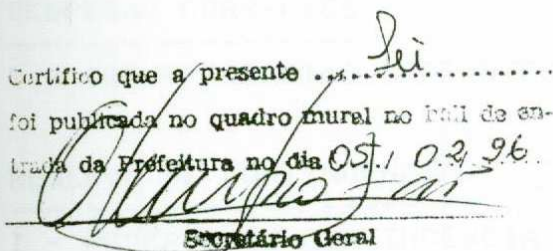 Certifico que a presente .... Lei ..............
foi publicada no quadro mural no hall de en-
trada da Prefeitura no dia 05 / 02 96
Secretário Geral